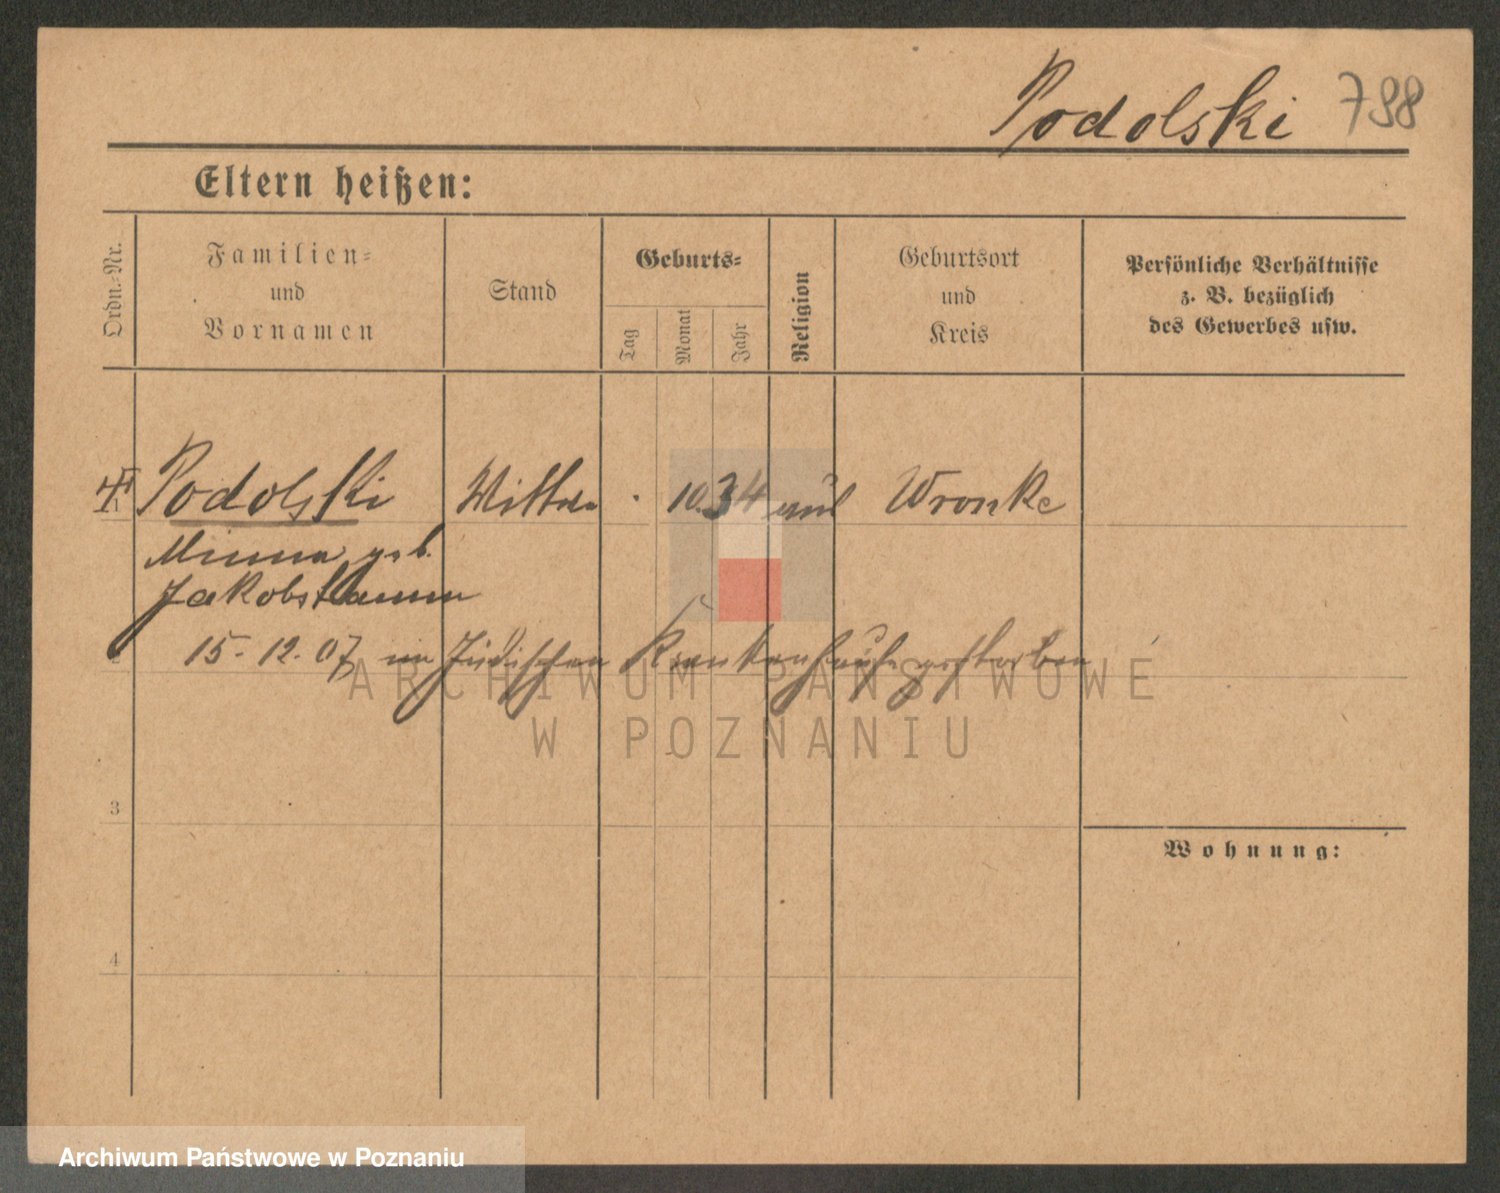 Podolski 788
Eltern heißen:
Ordn.-Nr. Familien- und Vornamen Stand Geburts- Tag Monat Jahr Religion Geburtsort und Kreis Persönliche Verhältnisse z. B. bezüglich des Gewerbes usw.
Podolski Wittwe 10. 34 Wronke
Minna geb.
Jakobstamm
15. 12. 07 im Jüdischen Krankenhause gestorben
ARCHIWUM PAŃSTWOWE
W POZNANIU
3
Wohnung:
4
Archiwum Państwowe w Poznaniu